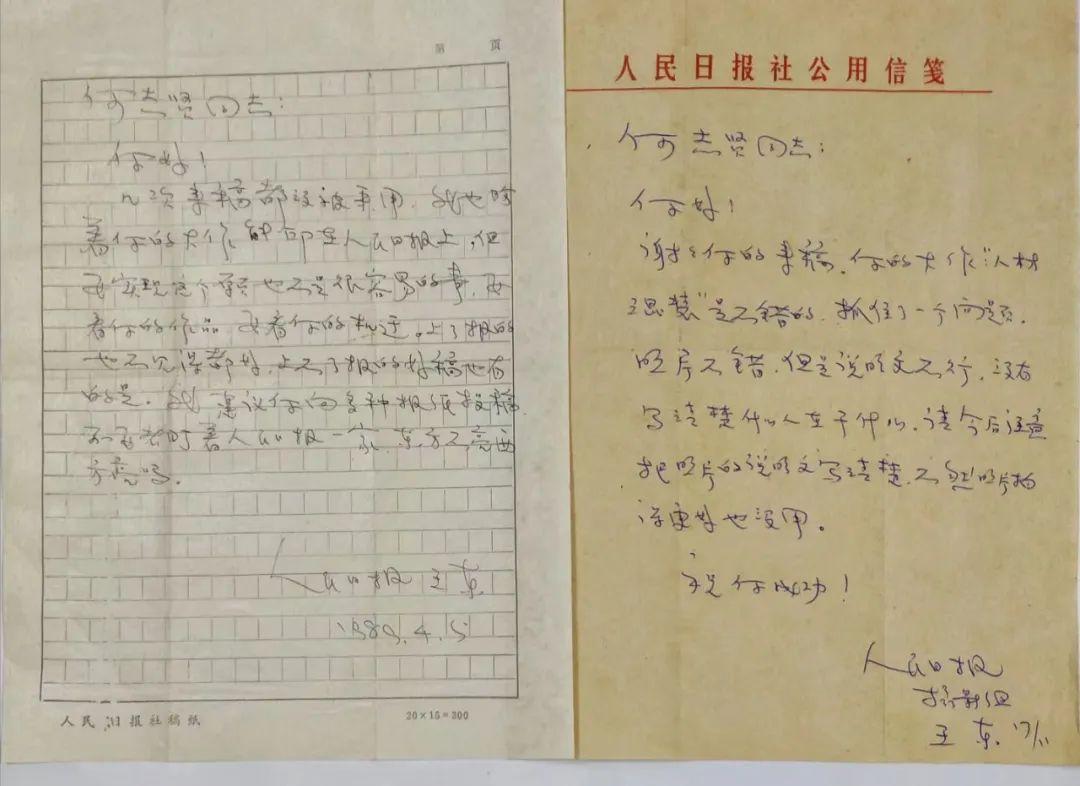 第 页
何志贤同志：
你好！
几次来稿都没被采用，我也盼
着你的大作能印在人民日报上，但
要实现这个愿也不是很容易的事，要
看你的作品，要看你的机遇。上了报的
也不见得都好，上不了报的好稿也有
的是。我建议你向多种报纸投稿
不要老盯着人民日报一家，东方不亮西
方亮吗。
人民日报 王东
1989.4.5
人民日报社稿纸
20×15=300
人民日报社公用信笺
何志贤同志：
你好！
谢谢你的来稿，你的大作"人材
"是不错的，抓住了一个问题。
照片不错，但是说明文不行，没有
写清楚什么人在干什么，请今后注意
把照片的说明文写清楚，不然照片拍
得更好也没用。
祝你成功！
人民日报
摄影组
王东 17/11